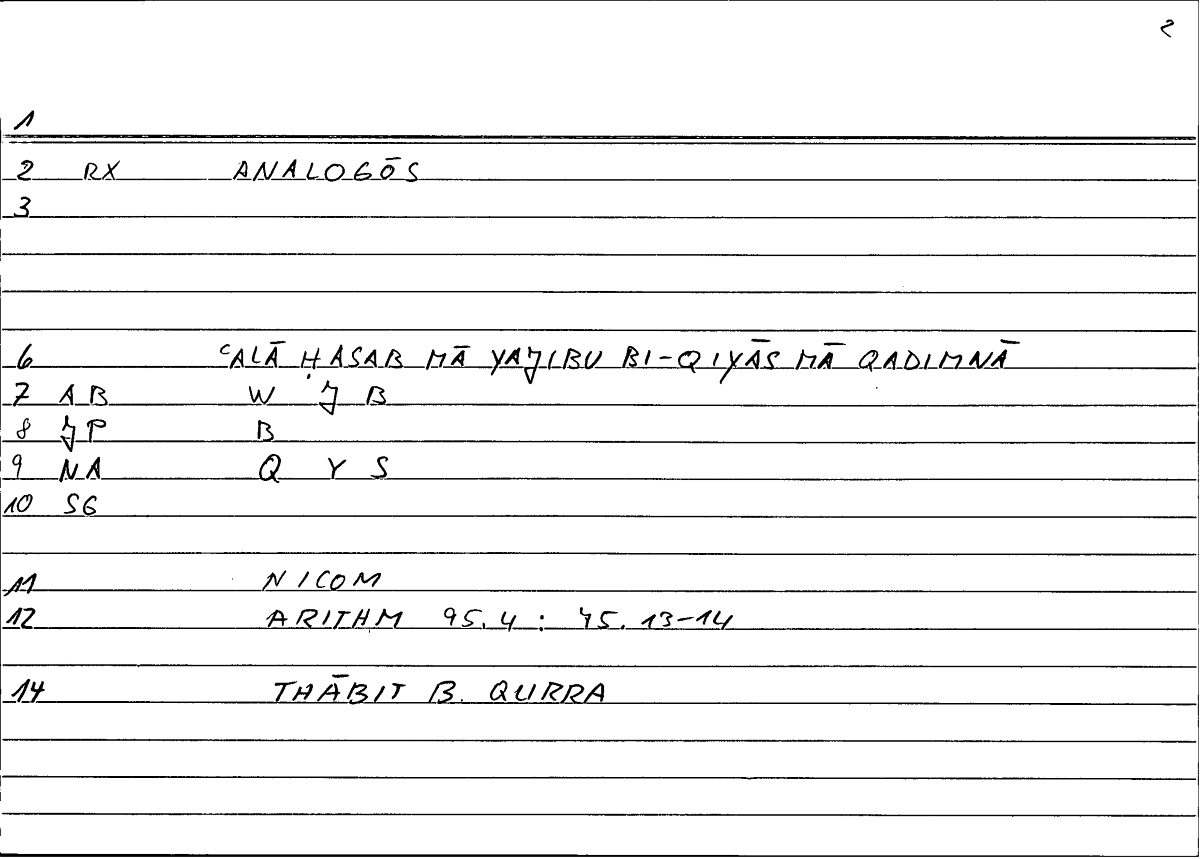 2
1
2 RX ANALOGŌS
3
6 ʿALĀ ḤASAB MĀ YAJIBU BI-QIYĀS MĀ QADIMNĀ
7 AB W J B
8 JP B
9 NA Q Y S
10 SG
11 NICOM
12 ARITHM 95.4 : 75.13-14
14 THĀBIT B. QURRA